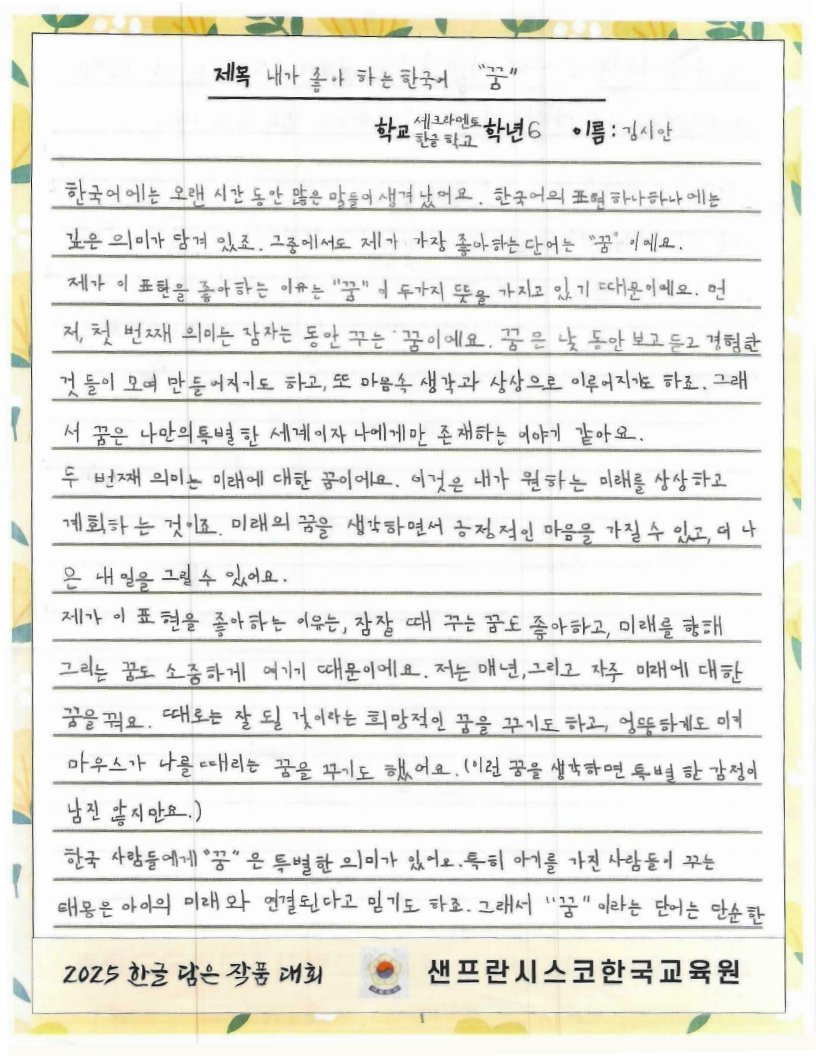 제목 내가 좋아 하는 한국어 "꿈"
학교 새크라멘토 한글 학교 학년 6 이름 : 김시안
한국어에는 오랜 시간 동안 많은 말들이 생겨 났어요. 한국어의 표현 하나하나에는
깊은 의미가 담겨 있죠. 그중에서도 제가 가장 좋아하는 단어는 "꿈"이에요.
제가 이 표현을 좋아하는 이유는 "꿈"이 두가지 뜻을 가지고 있기 때문이에요. 먼
저, 첫 번째 의미는 잠자는 동안 꾸는 꿈이에요. 꿈은 낮 동안 보고 듣고 경험한
것들이 모여 만들어지기도 하고, 또 마음속 생각과 상상으로 이루어지기도 하죠. 그래
서 꿈은 나만의 특별한 세계이자 나에게만 존재하는 이야기 같아요.
두 번째 의미는 미래에 대한 꿈이에요. 이것은 내가 원하는 미래를 상상하고
계획하는 것이죠. 미래의 꿈을 생각하면서 긍정적인 마음을 가질 수 있고, 더 나
은 내일을 그릴 수 있어요.
제가 이 표현을 좋아하는 이유는, 잠잘 때 꾸는 꿈도 좋아하고, 미래를 향해
그리는 꿈도 소중하게 여기기 때문이에요. 저는 매년, 그리고 자주 미래에 대한
꿈을 꿔요. 때로는 잘 될 것이라는 희망적인 꿈을 꾸기도 하고, 엉뚱하게도 미키
마우스가 나를 때리는 꿈을 꾸기도 했어요. (이런 꿈을 생각하면 특별한 감정이
남진 않지만요.)
한국 사람들에게 "꿈"은 특별한 의미가 있어요. 특히 아기를 가진 사람들이 꾸는
태몽은 아이의 미래와 연결된다고 믿기도 하죠. 그래서 "꿈"이라는 단어는 단순한
2025 한글 담은 작품 대회 샌프란시스코한국교육원